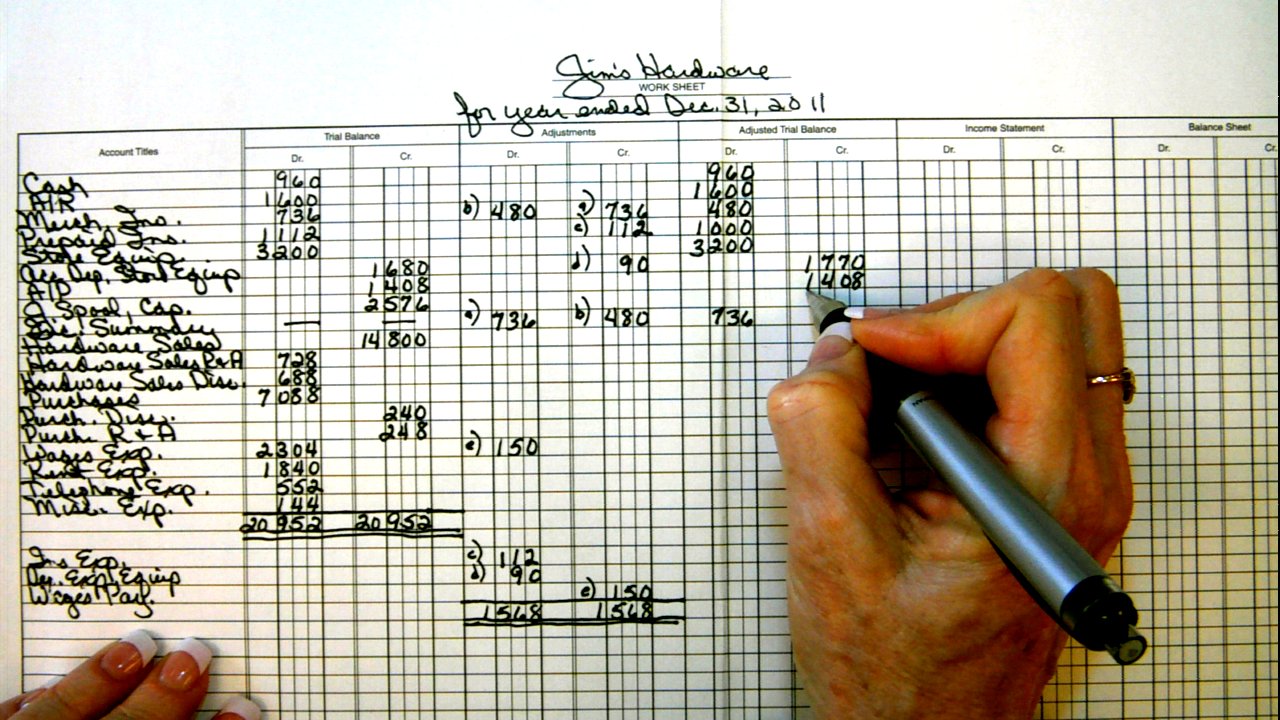 Jim's Hardware
WORK SHEET
for year ended Dec. 31, 2011
Account Titles Trial Balance Adjustments Adjusted Trial Balance Income Statement Balance Sheet
Dr. Cr. Dr. Cr. Dr. Cr. Dr. Cr. Dr. Cr.
Cash 960 960
A/R 1600 1600
Merch. Ins. 736 b) 480 a) 736 480
Prepaid Ins. 1112 c) 112 1000
Store Equip. 3200 3200
Acc. Dep. Store Equip 1680 d) 90 1770
A/P 1408 1408
Spool, Cap. 2576
Inc. Summary — — a) 736 b) 480 736
Hardware Sales 14800
Hardware Sales R&A 728
Hardware Sales Disc. 688
Purchases 7088
Purch. Disc. 240
Purch. R & A 248
Wages Exp. 2304 e) 150
Rent Exp. 1840
Telephone Exp. 552
Misc. Exp. 144
20952 20952
Ins Exp. c) 112
Dep. Exp. Equip d) 90
Wages Pay. e) 150
1568 1568